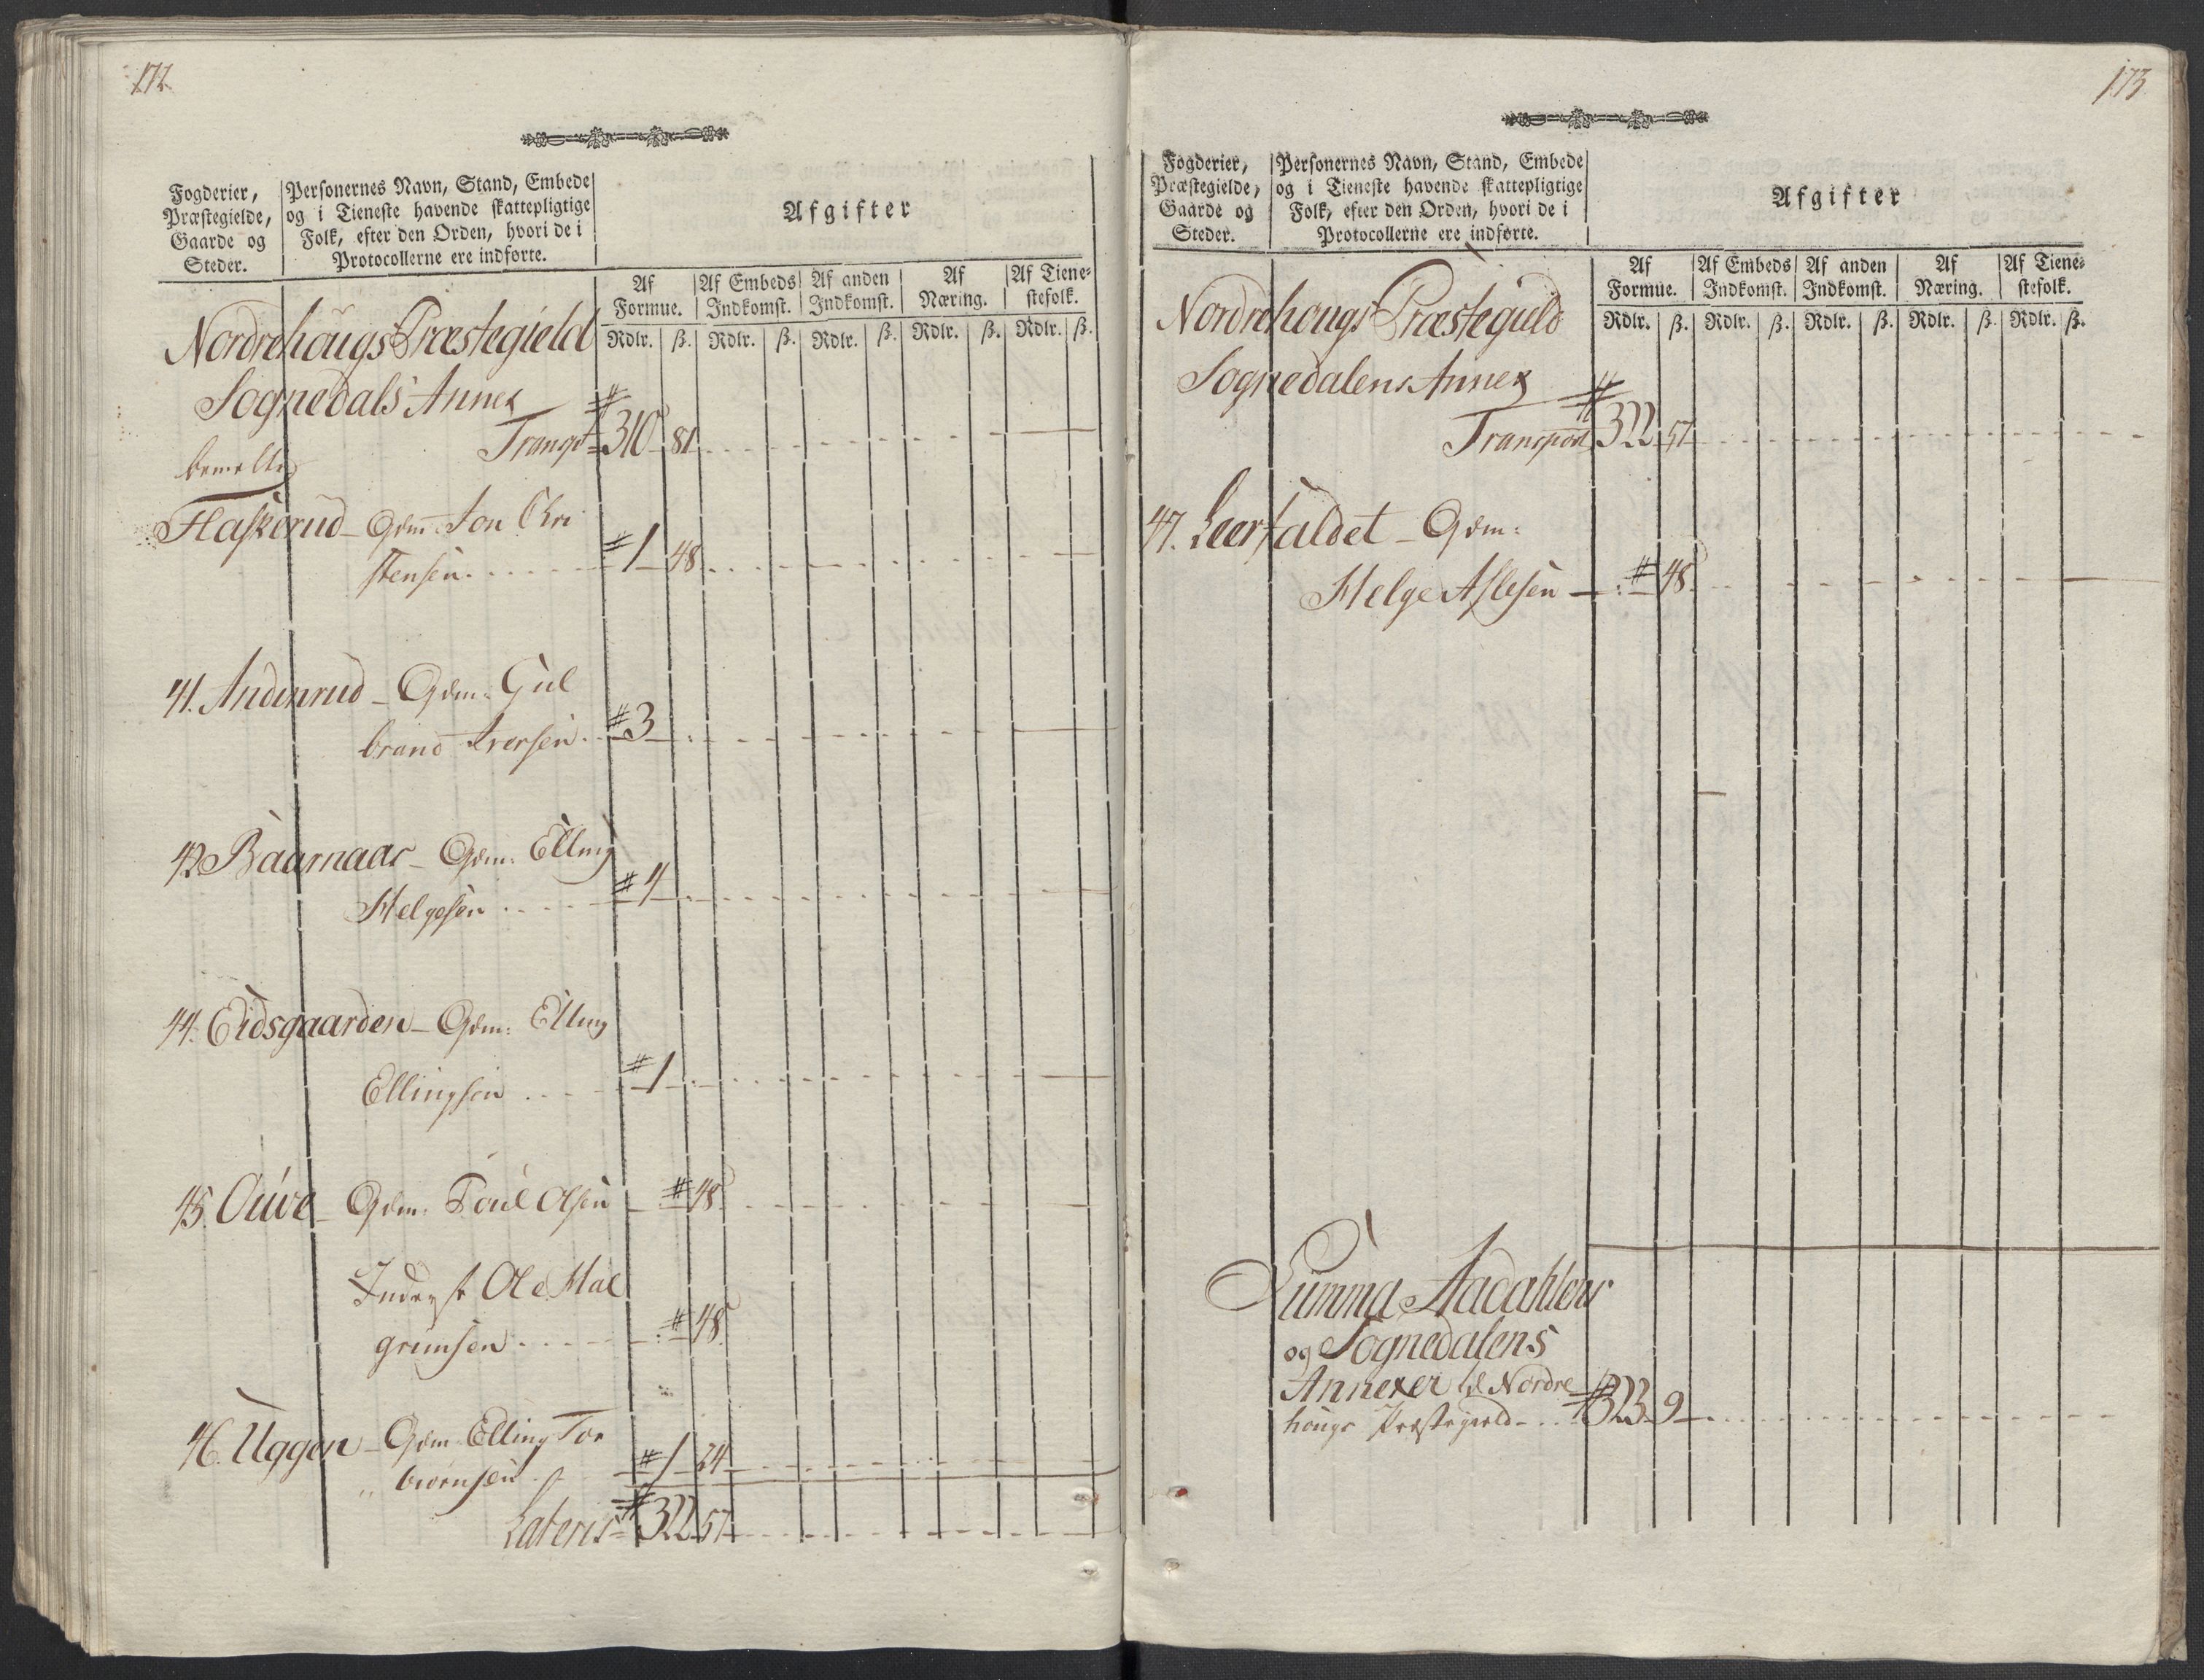 172
Fogderier,
Præstegielde,
Gaarde og
Steder.
Personernes Navn, Stand, Embede
og i Tieneste havende skattepligtige
Folk, efter den Orden, hvori de i
Protocollerne ere indførte.
Afgifter
Af Formue.
Af Embeds Indkomst.
Af anden Indkomst.
Af Næring.
Af Tiene-stefolk.
Rdlr. ß. Rdlr. ß. Rdlr. ß. Rdlr. ß. Rdlr. ß.
Nordrehougs Præstegield
Sognedals Annex
Transpt 310 81
bemelte
Flaskerud - Gdm: Jon Chri
stensen 1 48
41. Andenrud - Gdm: Gul
brand Iversen 3
42. Baarnaas - Gdm: Elling
Helgesen 4
44. Eidsgaarden - Gdm: Elling
Ellingsen 1
45. Ouve - Gdm: Poul Olsen 48
Inderst Ole Hal
grimsen 48
46. Uggen - Gdm: Elling Tor
biørnsen 1 24
Lateris 322 57
173
Fogderier,
Præstegielde,
Gaarde og
Steder.
Personernes Navn, Stand, Embede
og i Tieneste havende skattepligtige
Folk, efter den Orden, hvori de i
Protocollerne ere indførte.
Afgifter
Af Formue.
Af Embeds Indkomst.
Af anden Indkomst.
Af Næring.
Af Tiene-stefolk.
Rdlr. ß. Rdlr. ß. Rdlr. ß. Rdlr. ß. Rdlr. ß.
Nordrehougs Præstegield
Sognedalens Annex
Transport 322 57
47. Leerfaldet - Gdm:
Helge Aslesen 48
Summa Aadahlens
og Sognedalens
Annexer til Nordre
hougs Præstegield 323 9